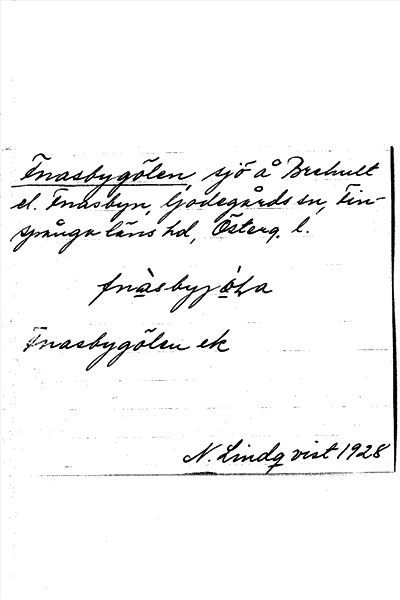 Fnasbygölen, sjö å Brehult
el. Fnasbyn, Godegårds sn, Fin-
spånga läns hd, Österg. l.
fnàsbyjöLa
Fnasbygölen ek
N. Lindqvist 1928